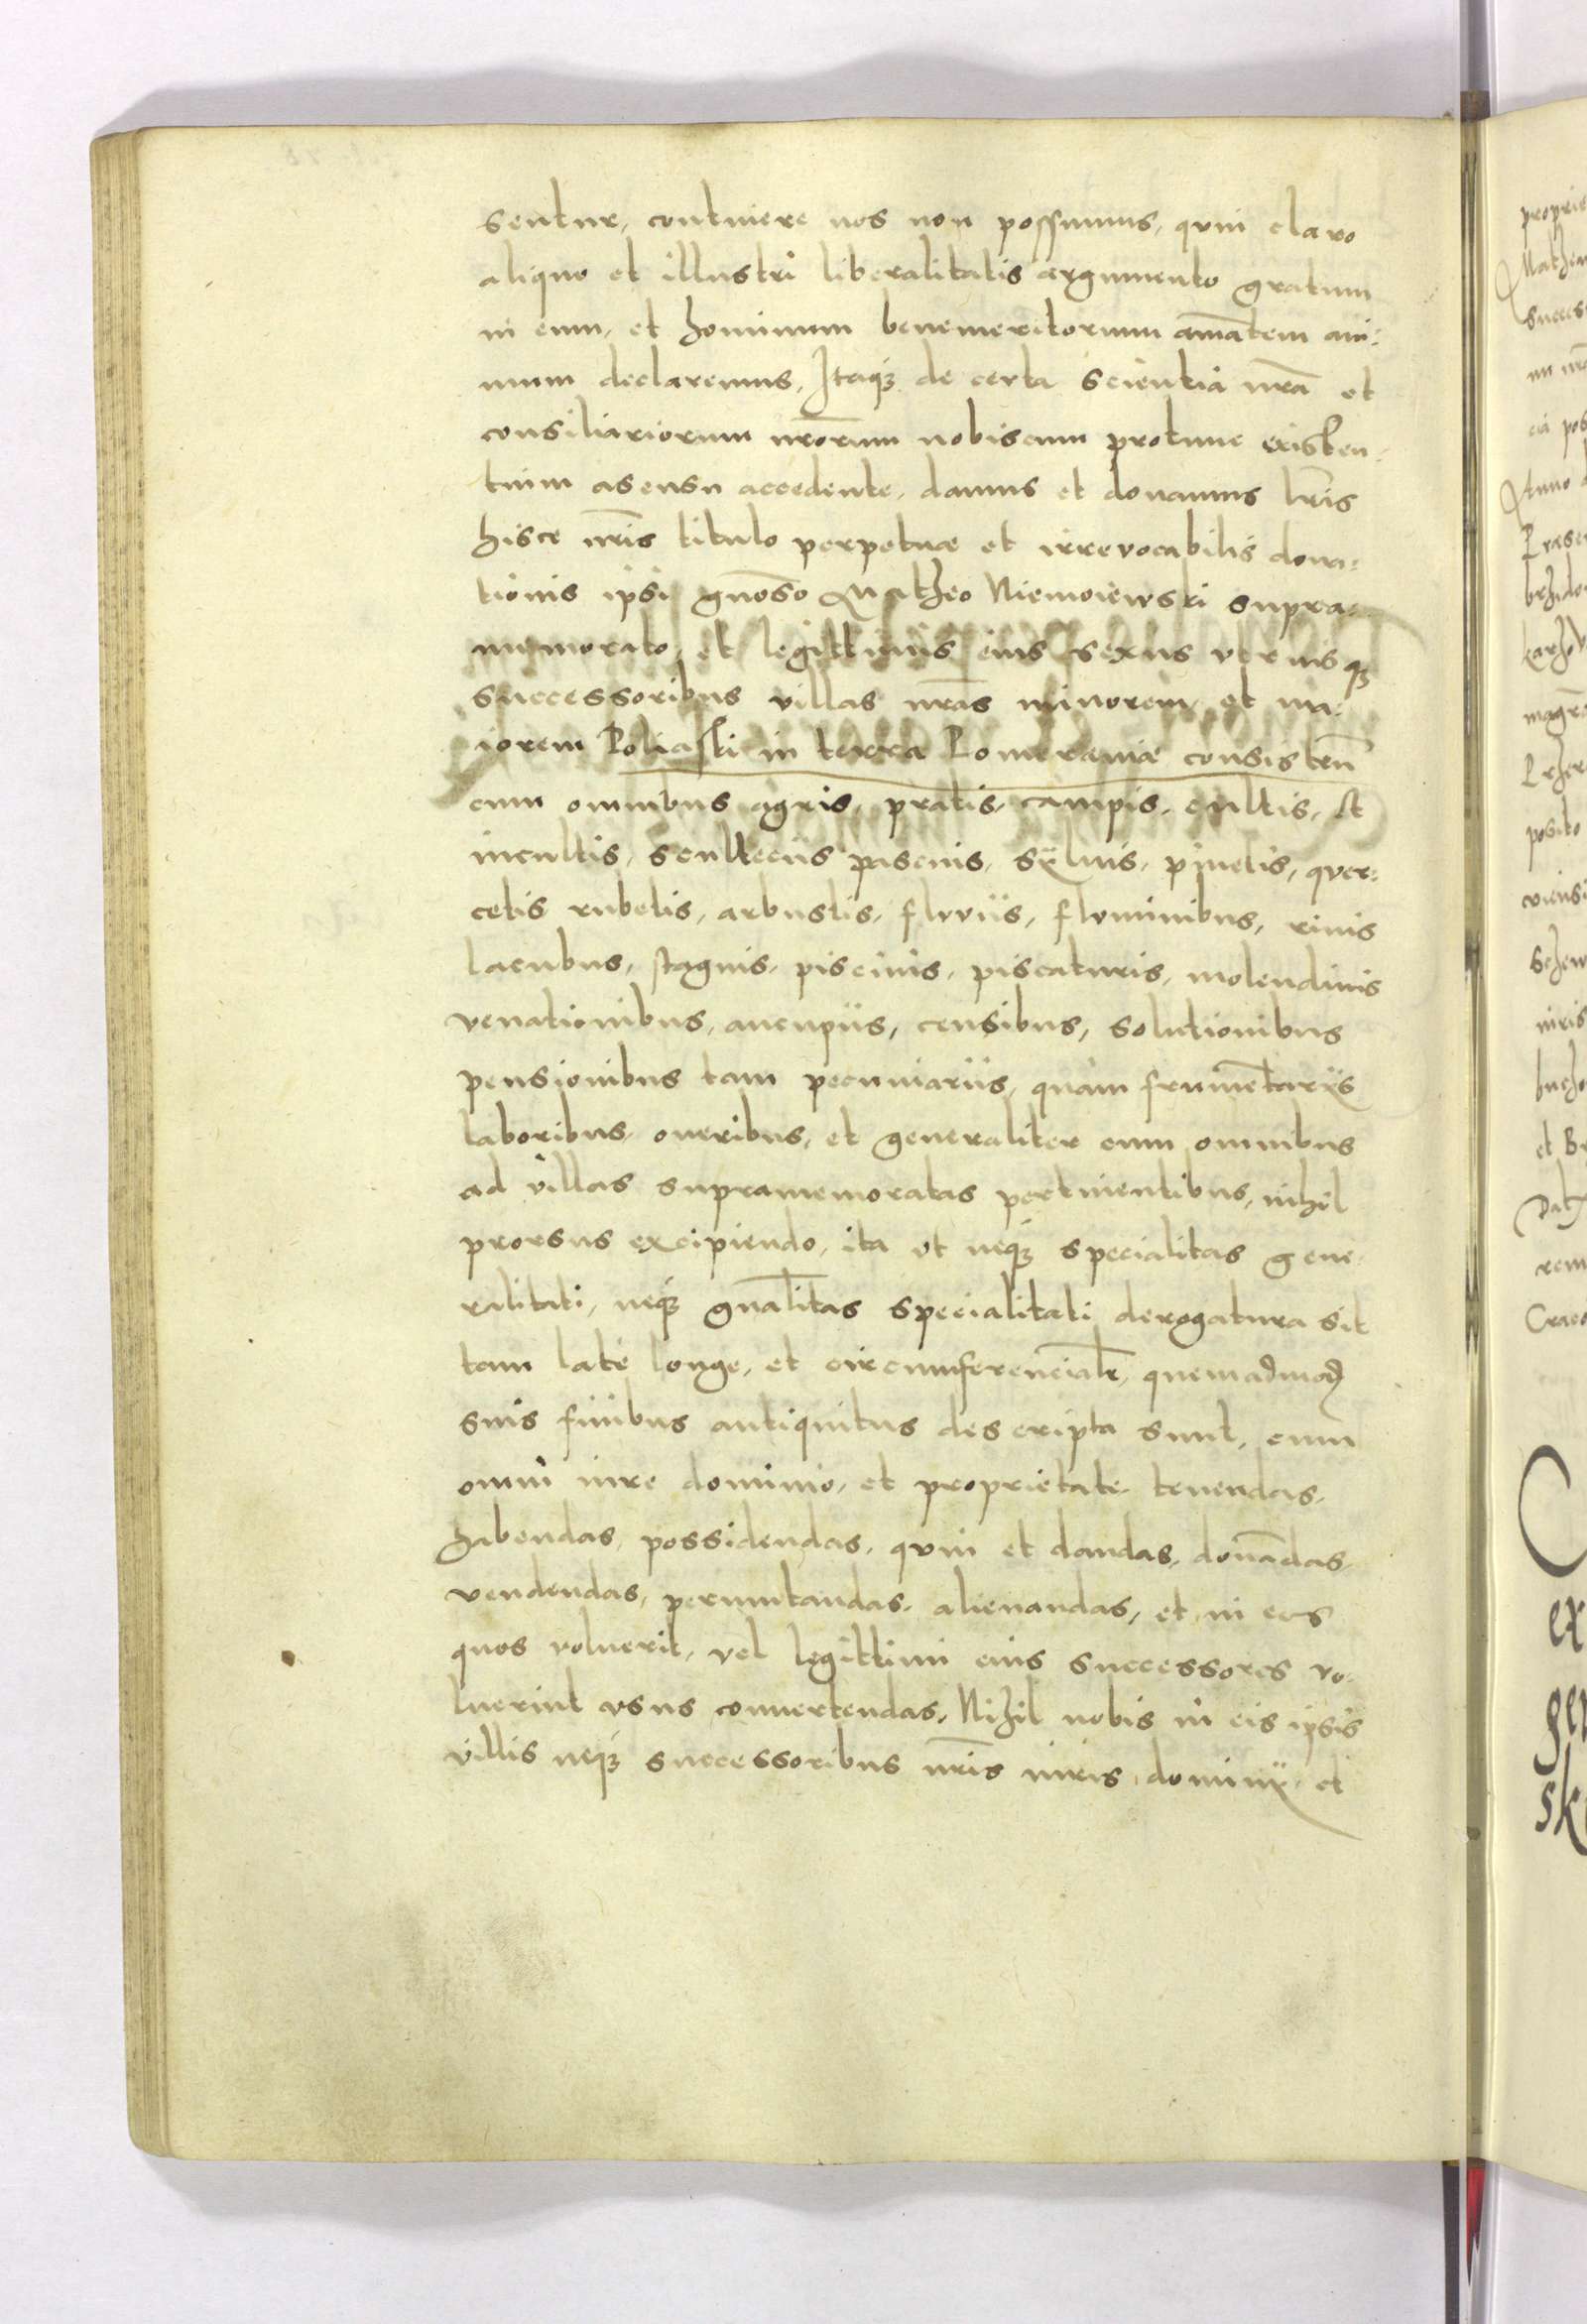 sentur, continere nos non possumus, quin claro
aliquo et illustri liberalitatis argumento gratum
in eum, et hominum benemeritorum amātem ani:
mum declaremus, Itaqȝ de certa scientia nr̄a et
consiliariorum nr̄orum nobiscum protunc existen:
tium asensu accedente, damus et donamus lr̄is
hisce nr̄is titulo perpetuæ et irrevocabilis dona:
tionis ipsi gn̄oso Matheo Niemoiewski supra:
memorato, et legittimis eius sexus vtriusqȝ
successoribus villas nr̄as minorem et ma:
iorem Poliaski in terra Pomeraniæ consisteñ
cum omnibus agris, pratis, campis, cultis, et
incultis, scultecÿs pascuis, sÿluis, pinetis, quer:
cetis rubetis, arbustis, fluvÿs, fluminibus, riuis
lacubus, stagnis, piscinis, piscaturis, molendinis
venationibus, aucupÿs, censibus, solutionibus
pensionibus tam pecuniarÿs, quàm frumētarÿs
laboribus, oneribus, et generaliter cum omnibus
ad villas supramemoratas pertinentibus, nihil
prorsus excipiendo, ita vt neqȝ specialitas gene:
ralitati, neqȝ gn̄alitas specialitati derogatura sit
tam late longe, et circumferencialr̄, quemadmod
suis finibus antiquitus descripta sunt, cum
omni iure dominio, et proprietate tenendas,
habendas, possidendas, quin et dandas, donādas,
vendendas, permutandas, alienandas, et in eos
quos voluerit, vel legittimi eius successores vo:
luerint vsus conuertendas, Nihil nobis in eis ipsis
villis neqȝ successoribus nr̄is iuris dominÿ, et